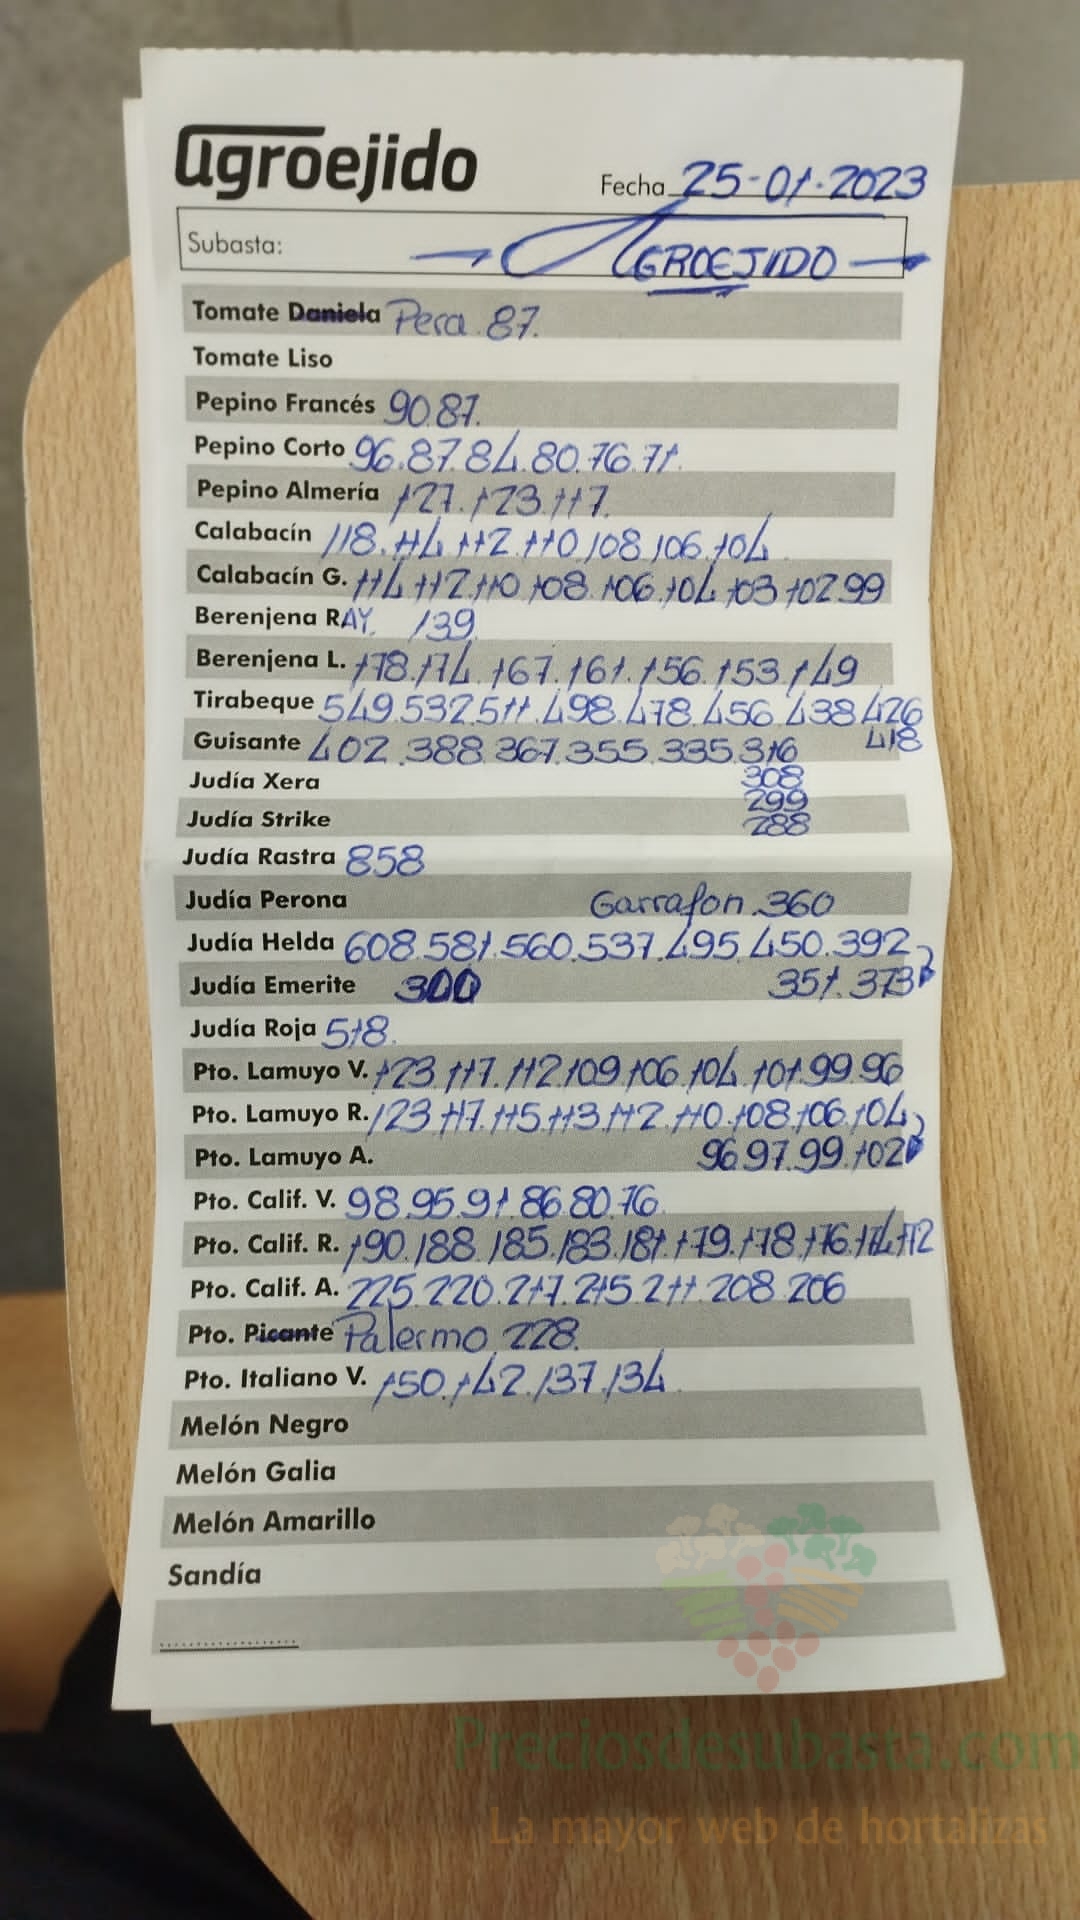 agroejido
Fecha 25-01-2023
Subasta: AGROEJIDO
Tomate Daniela Pera 87.
Tomate Liso
Pepino Francés 90.87.
Pepino Corto 96.87.84.80.76.71.
Pepino Almería 127.123.117.
Calabacín 118.114.112.110.108.106.104
Calabacín G. 114.112.110.108.106.104.103.102.99
Berenjena RAY. 139
Berenjena L. 178.174.167.161.156.153.149
Tirabeque 549.532.511.498.478.456.438.426
418
Guisante 402.388.367.355.335.316
Judía Xera 308
299
Judía Strike 288
Judía Rastra 858
Judía Perona Garrafon.360
Judía Helda 608.581.560.537.495.450.392
Judía Emerite 300 351.373
Judía Roja 518.
Pto. Lamuyo V. 123.117.112.109.106.104.101.99.96
Pto. Lamuyo R. 123.117.115.113.112.110.108.106.104
Pto. Lamuyo A. 96.97.99.102
Pto. Calif. V. 98.95.91.86.80.76.
Pto. Calif. R. 190.188.185.183.181.179.178.176.174.172
Pto. Calif. A. 225.220.217.215.211.208.206
Pto. Picante Palermo 228.
Pto. Italiano V. 150.142.137.134
Melón Negro
Melón Galia
Melón Amarillo
Sandía
Preciosdesubasta.com
La mayor web de hortalizas